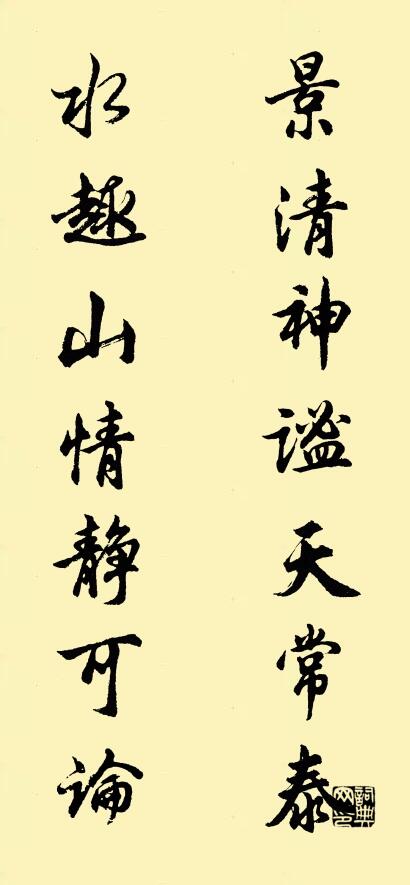 景清神谧天常泰
水趣山情静可論
詞典网印